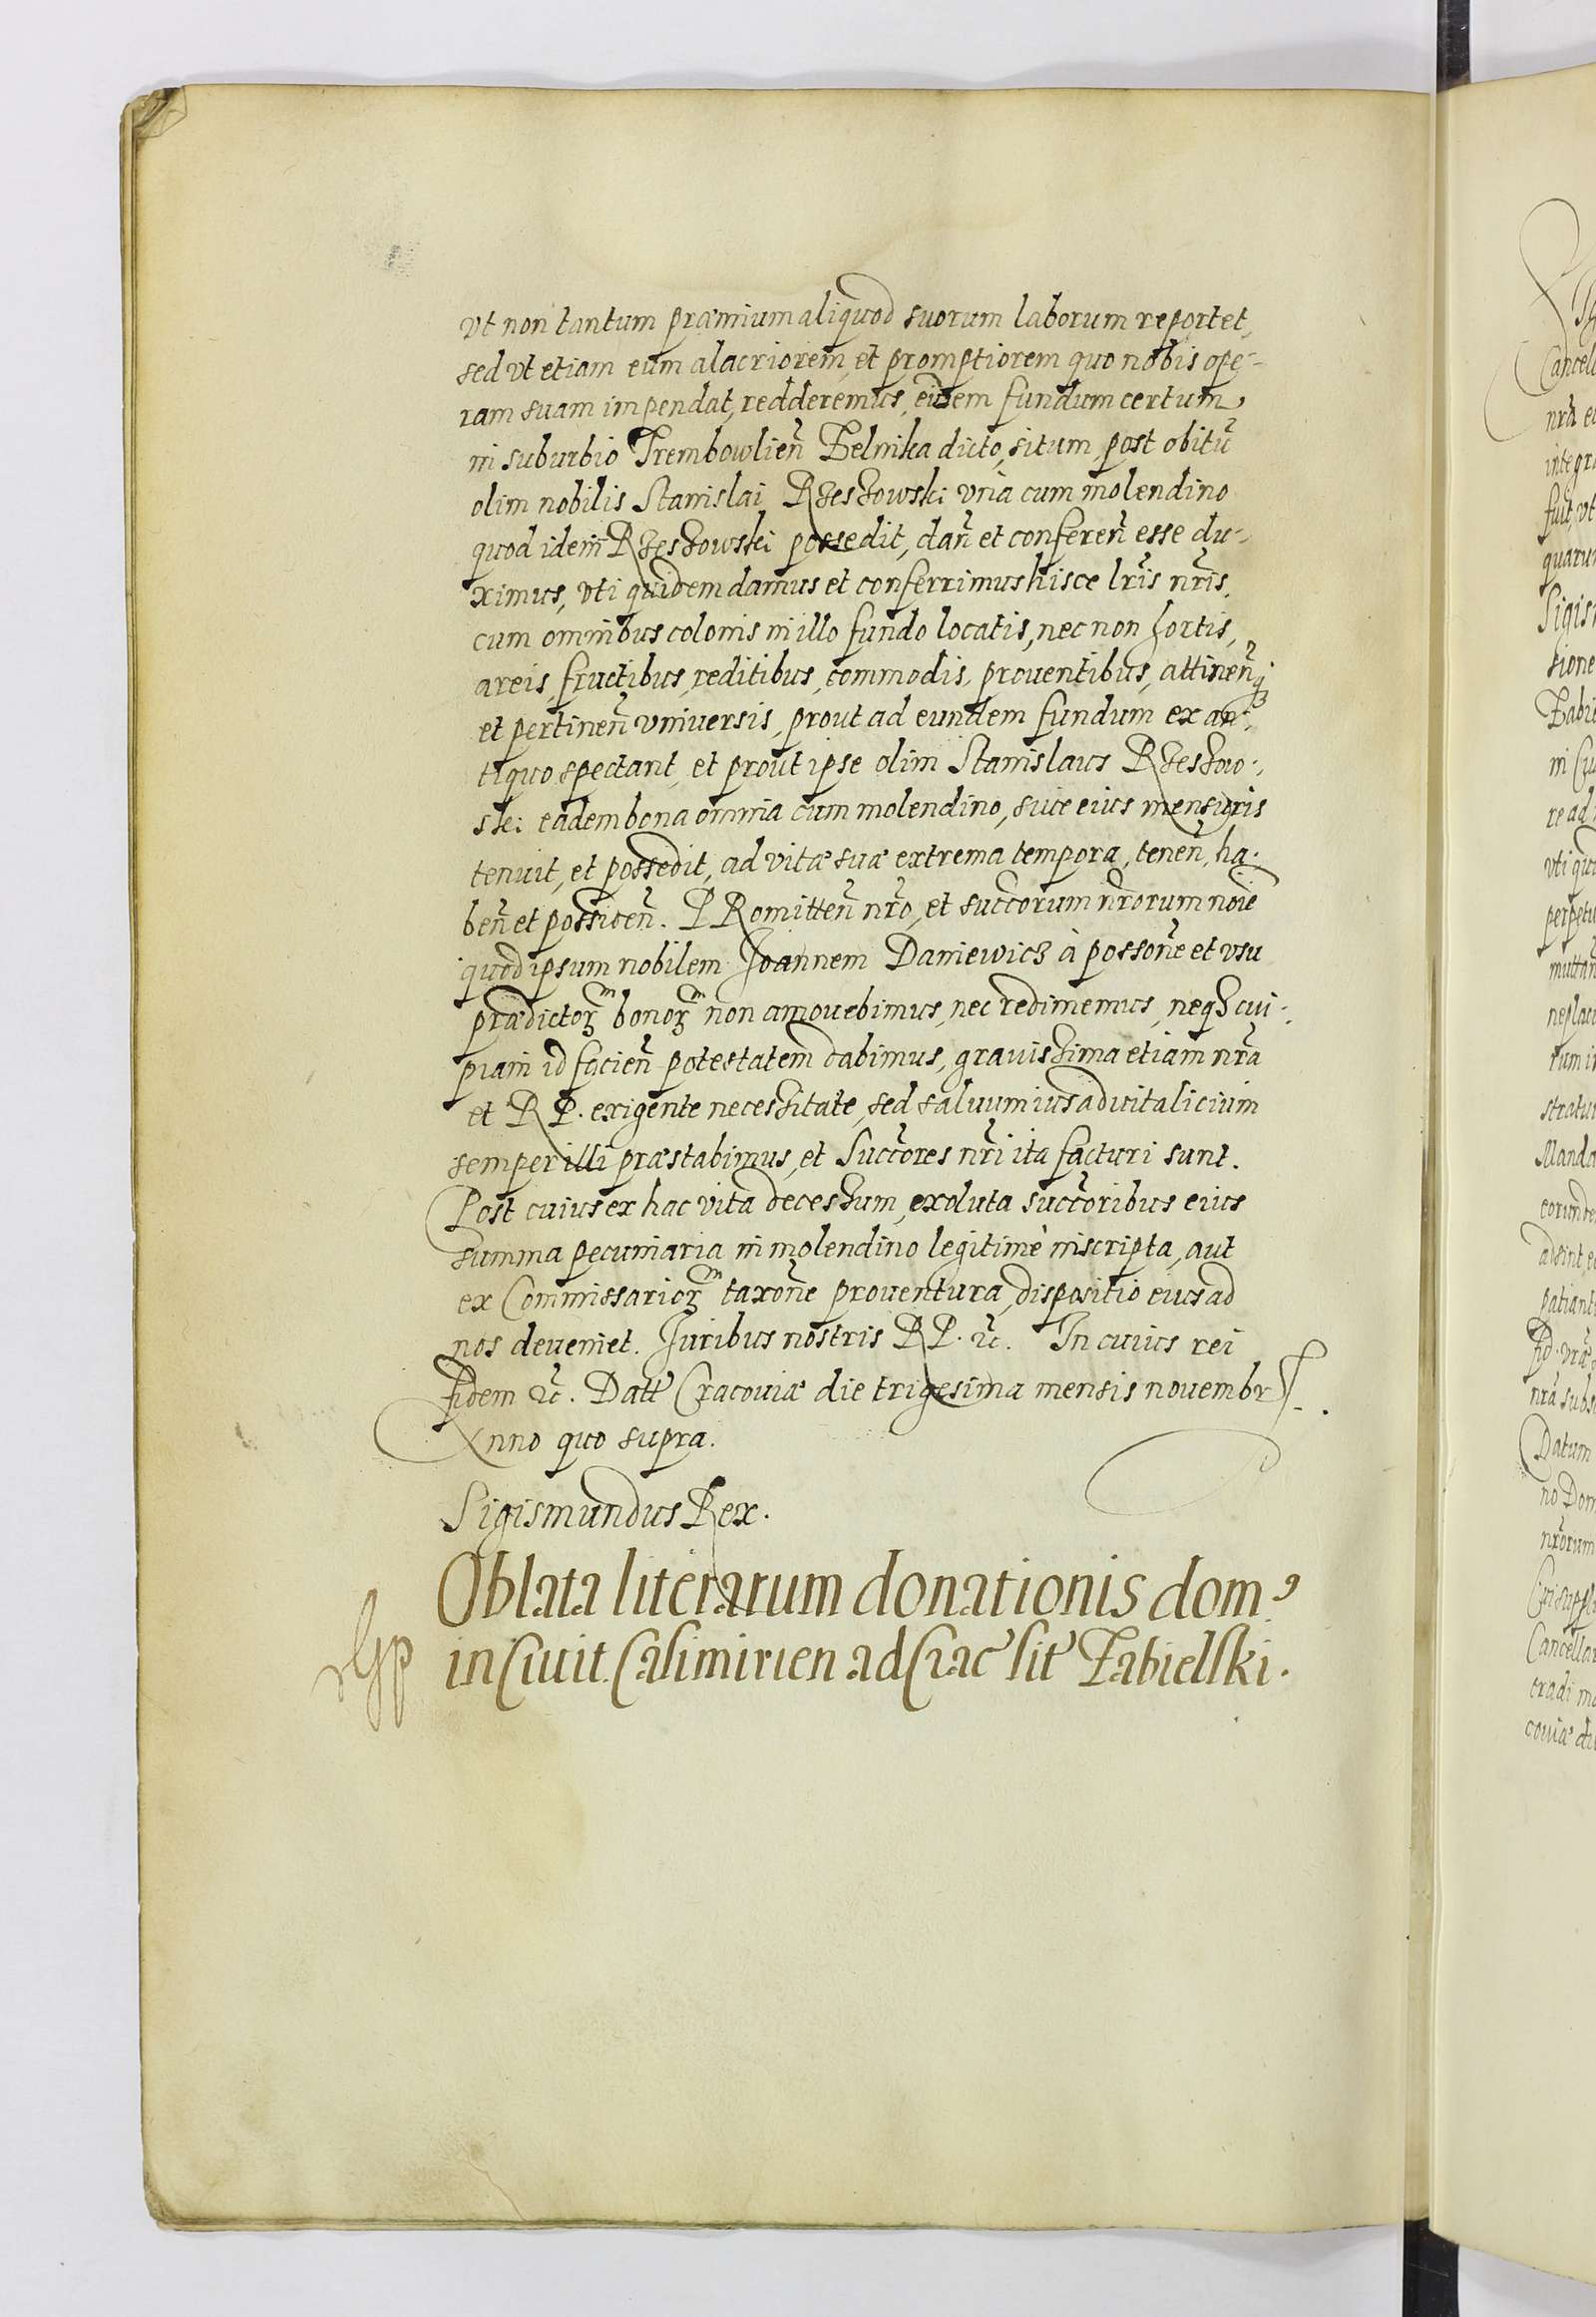 vt non tantum præmium aliquod suorum laborum reportet,
sed vt etiam eum alacriorem, et promptiorem quo nobis ope-
ram suam impendat, redderemus, eidem fundum certum
in suburbio Trembowlien̄ Zelnika dicto, situm, post obitū
olim nobilis Stanislai Rzeszowski vnà cum molendino
quod idem Rzeszowski possedit, dan̄ et conferen̄ esse du-
ximus, vti quidem damus et conferrimus hisce lr̄is nr̄is,
cum omnibus colonis in illo fundo locatis, nec non hortis,
areis, fructibus, reditibus, commodis, prouentibus, attinen̄q3
et pertinen̄ vniuersis, prout ad eundem fundum ex an-
tiquo spectant, et prout ipse olim Stanislaus Rzeszow-
ski eadem bona omnia cum molendino, siue eius mensuris
tenuit, et possedit, ad vitæ suæ extrema tempora, tenen̄, ha-
ben̄ et possiden̄. PRomitten̄ nr̄o, et succ̄orum nr̄orum noīe
quod ipsum nobilem Joannem Daniewicz à posson̄e et vsu
prædictorꝫᵐ bonorꝫᵐ non amouebimus, nec redimemus, neq3 cui-
piam id facien̄ potestatem dabimus, grauissima etiam nr̄a
et RP. exigente necessitate, sed saluum ius aduitalicium
semper illi præstabimus, et Succ̄ores nr̄i ita facturi sunt.
Post cuius ex hac vita decessum, exoluta succ̄oribus eius
summa pecuniaria in molendino legitimè inscripta, aut
ex Commissariorꝫᵐ taxon̄e prouentura, dispositio eius ad
nos deueniet. Juribus nostris RP. &c. In cuius rei
fidem &c. Datt Cracouiæ die trigesima mensis nouembr
Anno quo supra.
Sigismundus Rex.
Oblata literarum donationis dom9
in Ciuit. Casimirien ad Crac̄ sit̄ Zabielski.